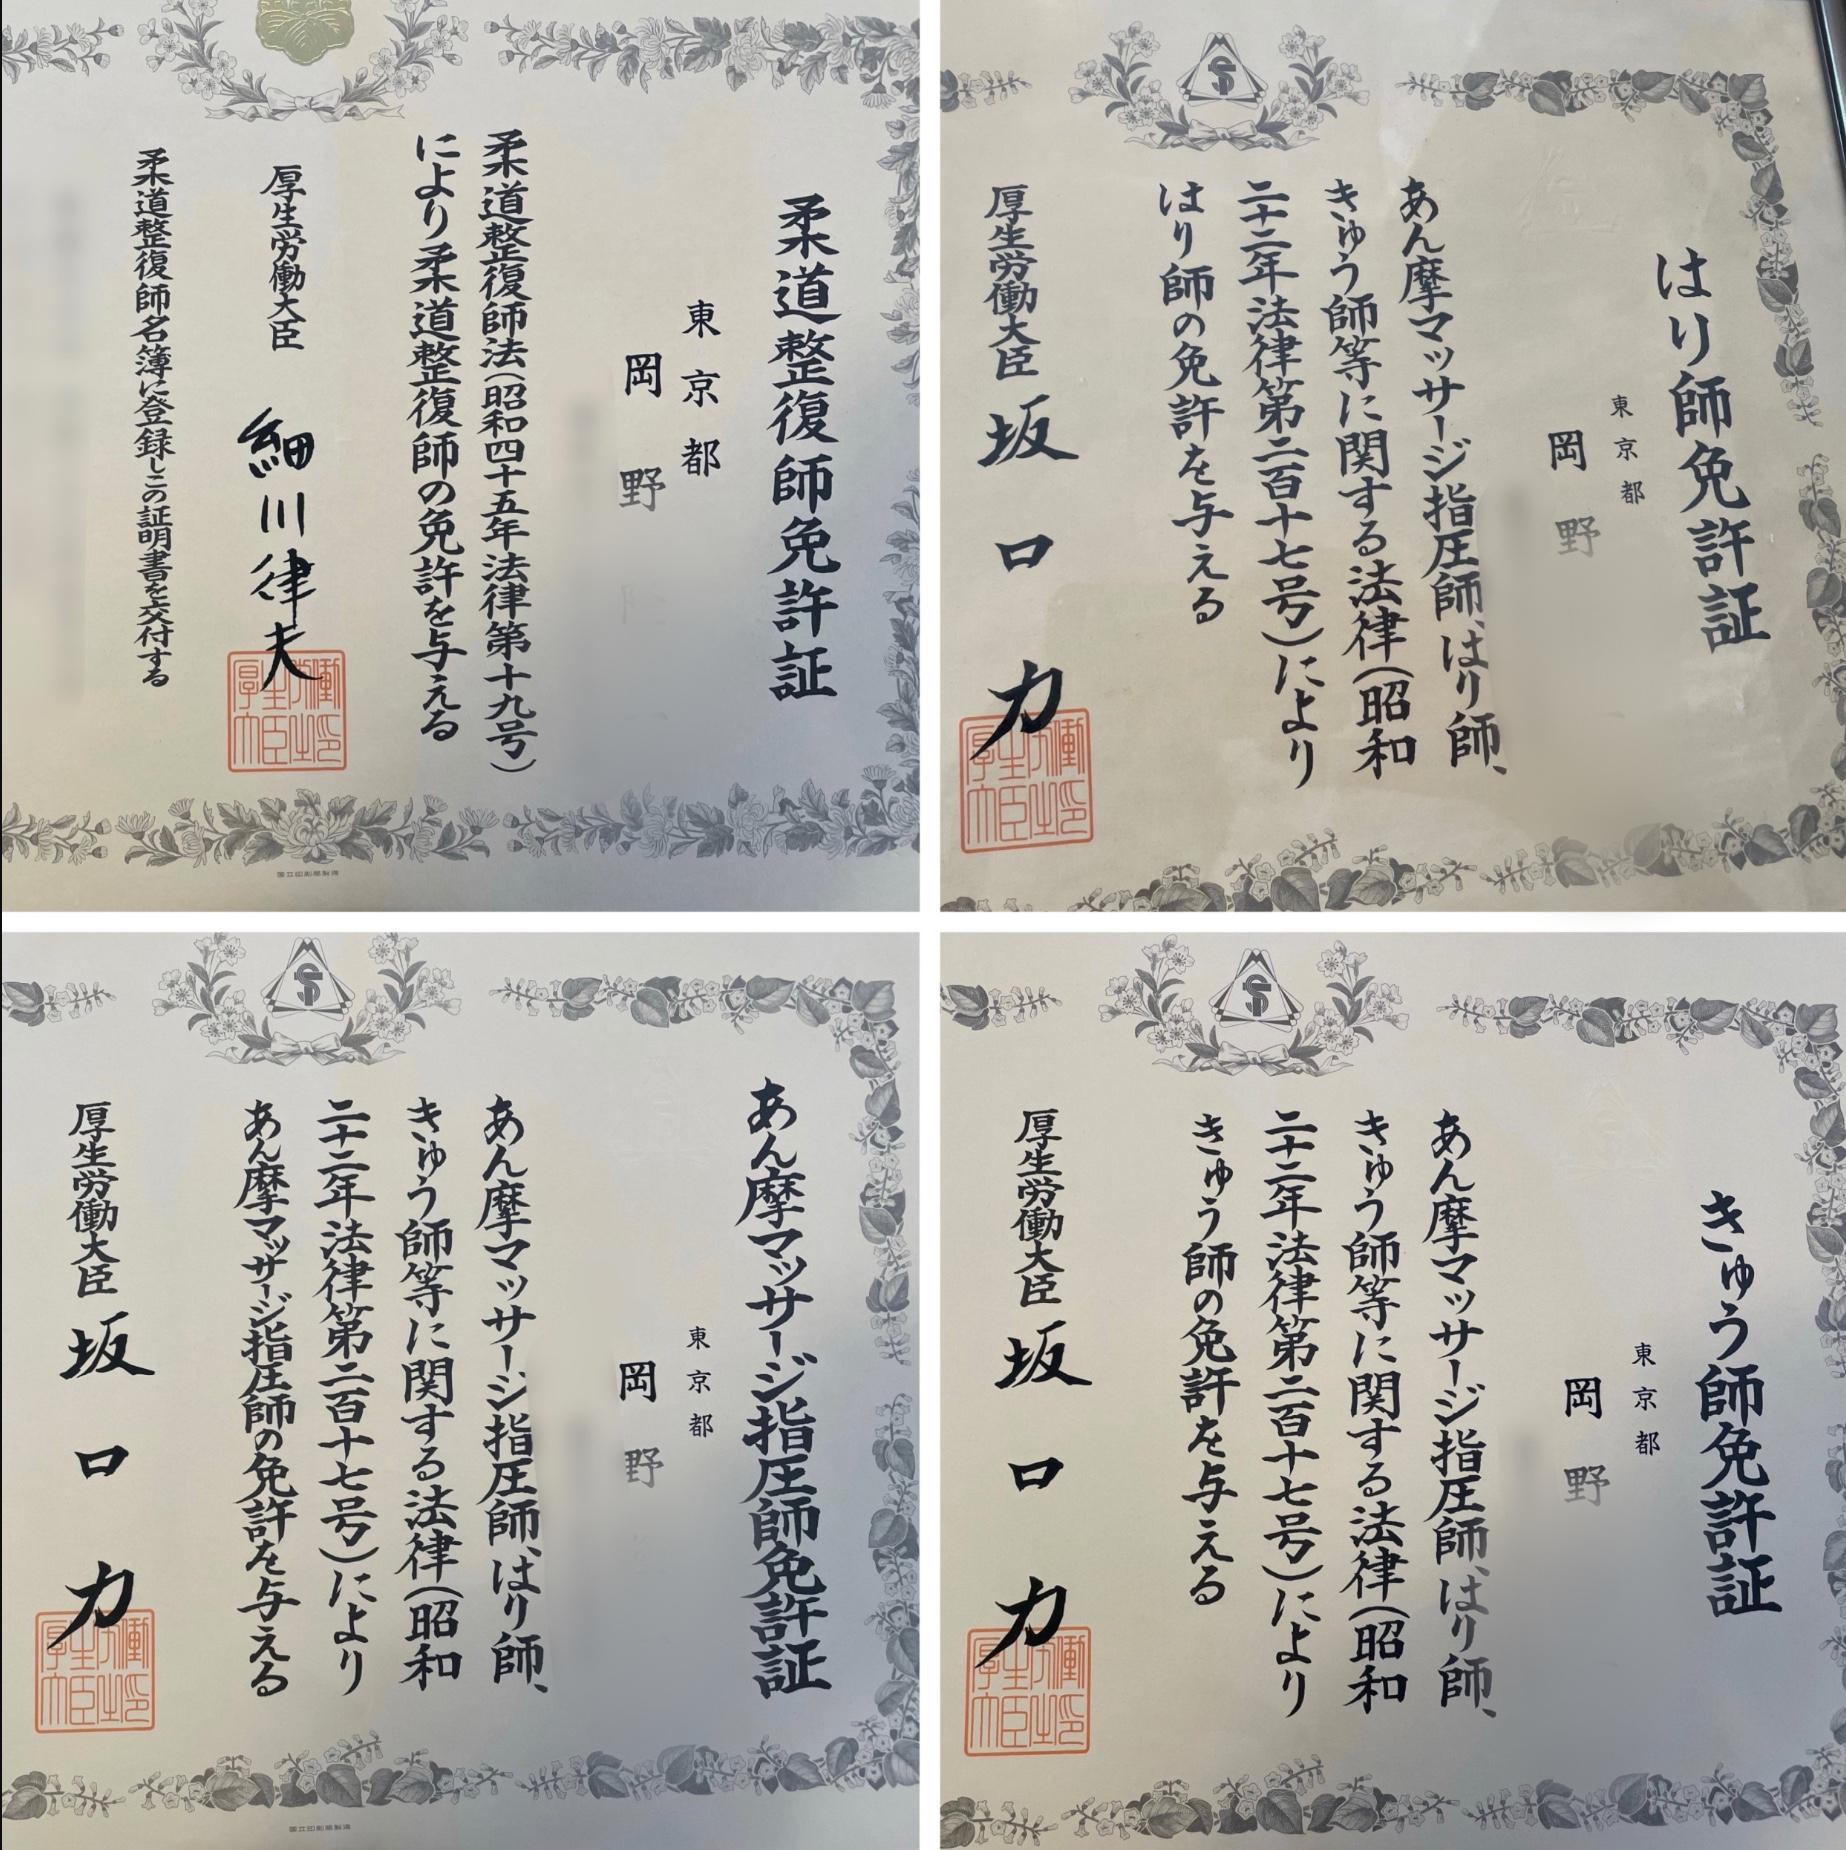 柔道整復師免許証
東京都
岡野
柔道整復師法(昭和四十五年法律第十九号)
により柔道整復師の免許を与える
厚生労働大臣 細川律夫
柔道整復師名簿に登録しこの証明書を交付する
国立印刷局製造
はり師免許証
東京都
岡野
あん摩マッサージ指圧師、はり師、
きゅう師等に関する法律(昭和
二十二年法律第二百十七号)により
はり師の免許を与える
厚生労働大臣 坂口力
あん摩マッサージ指圧師免許証
東京都
岡野
あん摩マッサージ指圧師、はり師、
きゅう師等に関する法律(昭和
二十二年法律第二百十七号)により
あん摩マッサージ指圧師の免許を与える
厚生労働大臣 坂口力
国立印刷局製造
きゅう師免許証
東京都
岡野
あん摩マッサージ指圧師、はり師、
きゅう師等に関する法律(昭和
二十二年法律第二百十七号)により
きゅう師の免許を与える
厚生労働大臣 坂口力